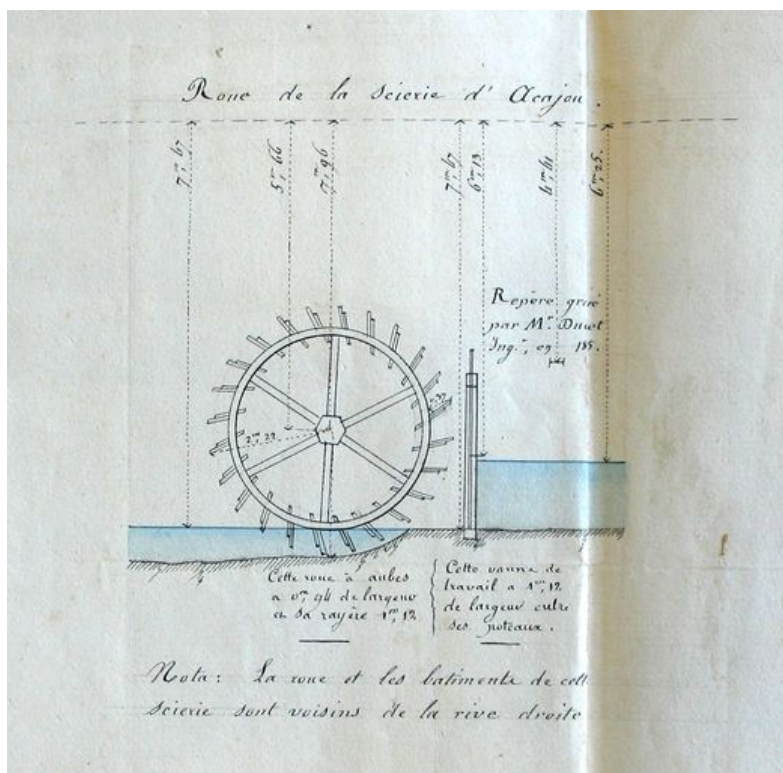 Roue de la scierie d'Acajou.
7,m67
5,m66
7,m96
7,m67
6,m13
4,m61
6,m25.
Repère gravé
par Mr. Ducet
Ingr., en 185.
2m,22
Cette roue à aubes
a 0m,94 de largeur
et sa rayère 1m,12
Cette vanne de
travail a 1m,12
de largeur entre
ses poteaux.
Nota: La roue et les batiments de cett
scierie sont voisins de la rive droite